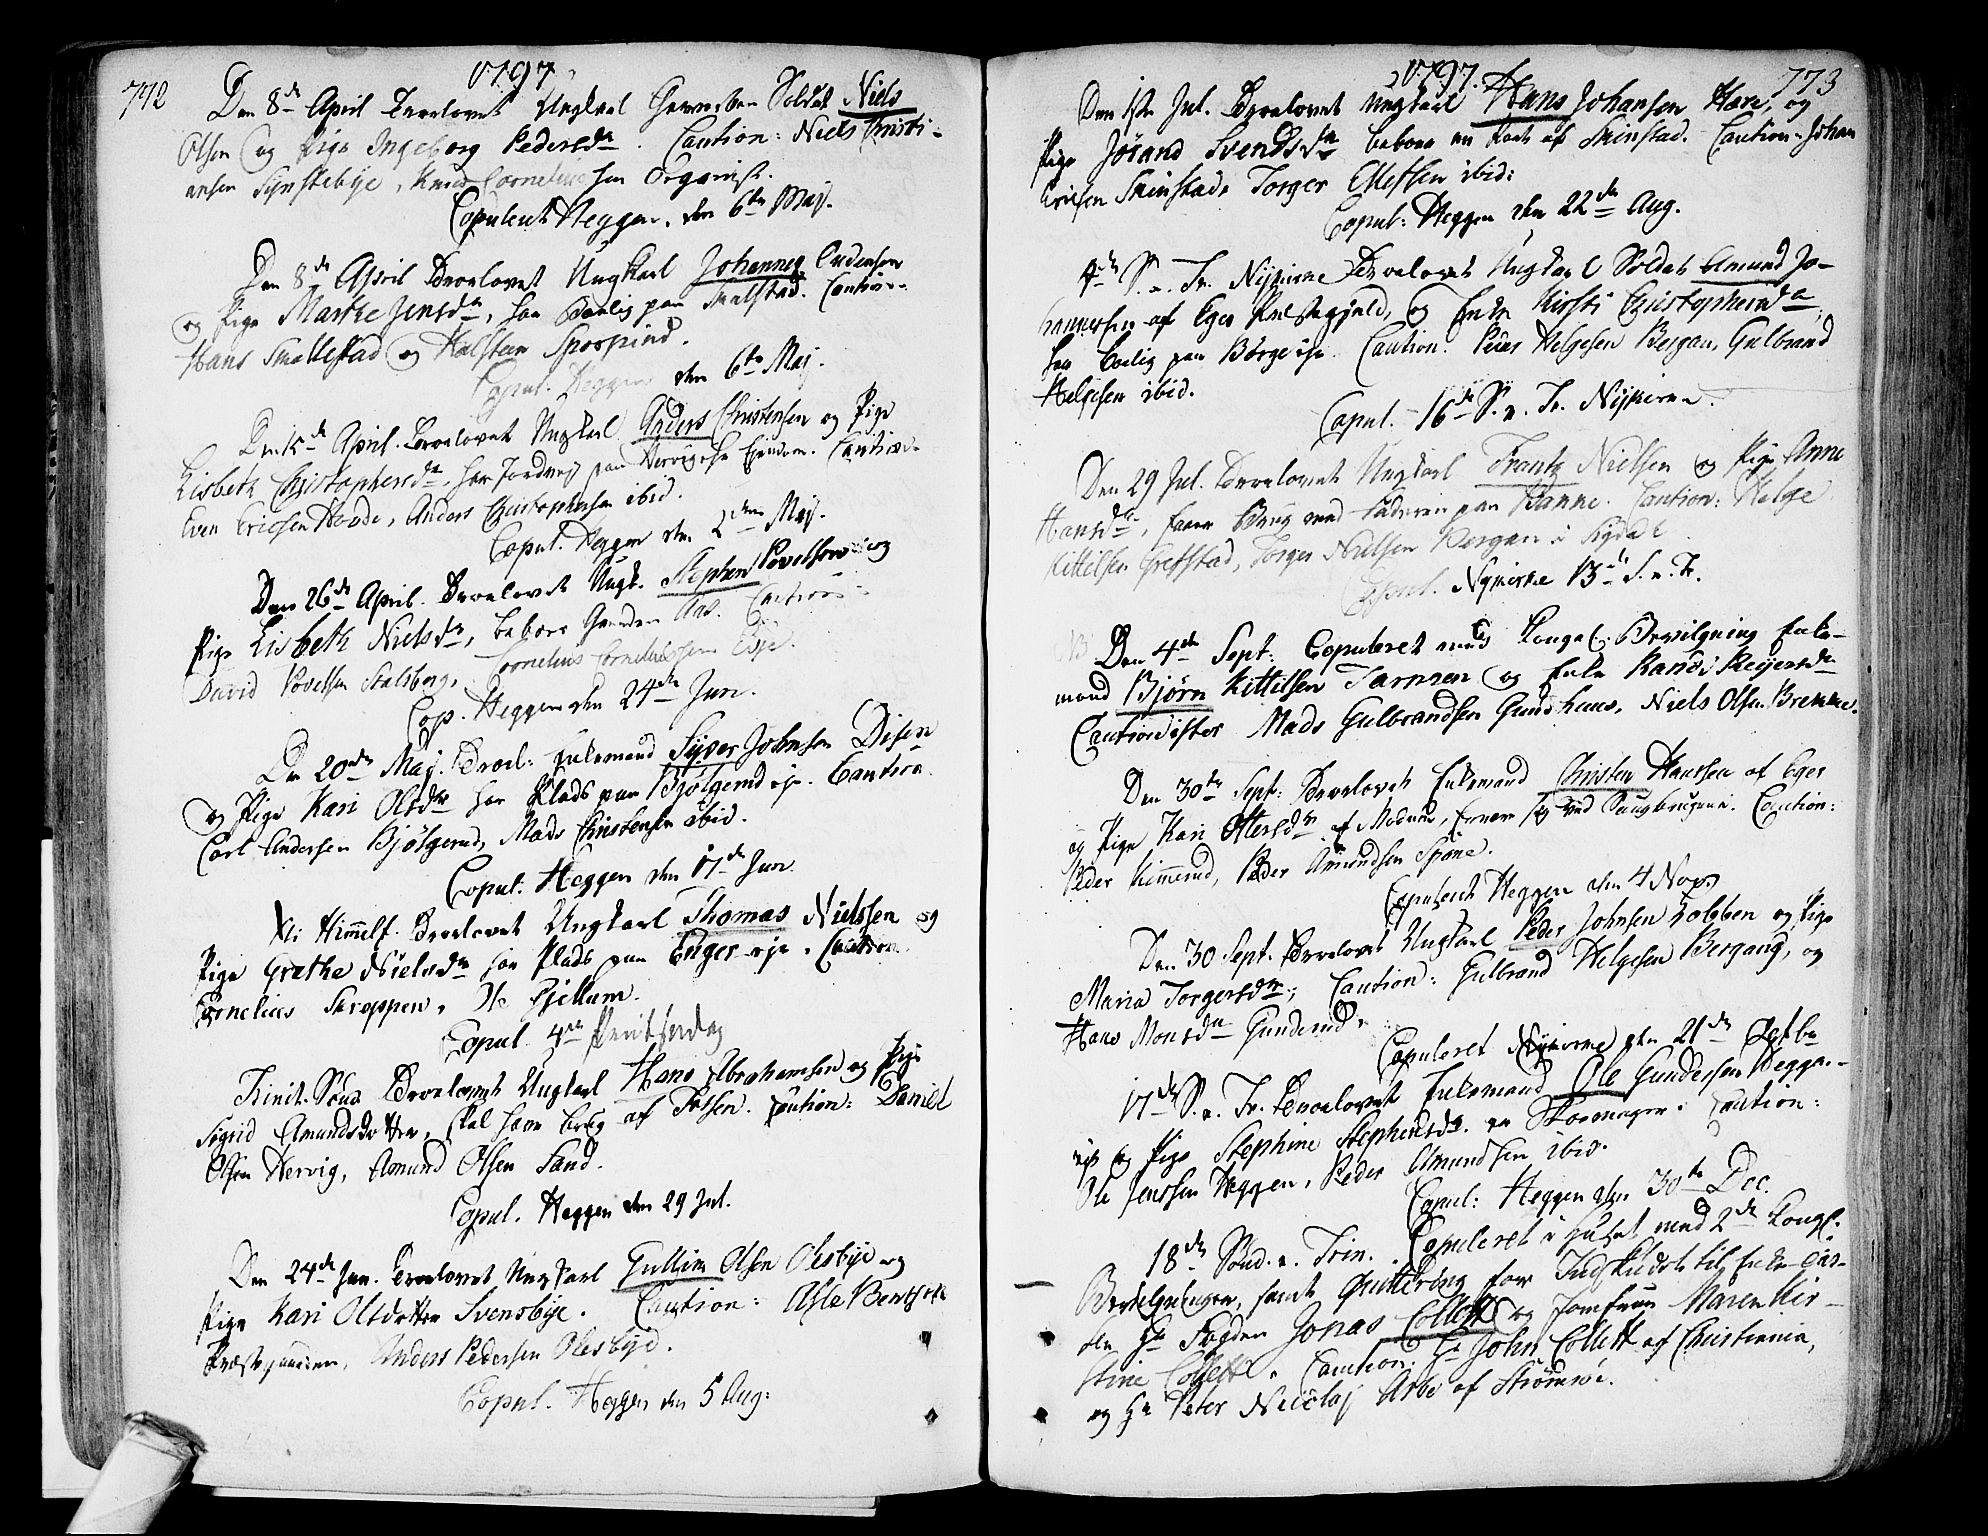 772
1797
Den 8de April Trolovet Ungkarl Soldat Niels
Olsen og Pige Ingeborg Pedersdr. Caution: Niels Christi-
ansen Synstebye, Knud Corneliussen Organist.
Copuleret Heggen, den 6te Maj.
Den 8de April Trolovet Ungkarl Johannes Endersen
og Pige Marthe Jensdr, har Bolig paa Smalstad. Caution:
Hans Smallestad og Halsteen Sporpind.
Copul. Heggen den 6te Maj.
Den 15de April Trolovet Ungkarl Anders Christensen og Pige
Lisbeth Christophersdr, har Jordvej paa Hervigs Ejendom. Caution:
Even Ericsen Hovde, Anders Christophersen ibid.
Copul. Heggen den 2den Maj.
Den 26de April. Trolovet Ungk. Stephen Povelsen og
Pige Lisbeth Nielsdr, beboer Gaarden Aas. Caution:
David Povelsen Stalsberg, Cornelius Corneliussen
Cop. Heggen den 24de Jun.
Den 20de Maj. Trol: Enkemand Syver Johnsen Disen
og Pige Kari Olsdr har Plads paa Bjølgerud eje. Caution:
Carl Andersen Bjølgerud, Mads Christensen ibid.
Copul: Heggen den 17de Jun.
Xti Himmelf. Trolovet Ungkarl Thomas Nielssen og
Pige Grethe Nielsdr har Plads paa Enger eje. Caution:
Cornelius Skreppen, Ole Gjellum.
Copul. 4de
Trinit. Sønd. Trolovet Ungkarl Hans Abrahamsen og Pige
Sigrid Amundsdotter, skal have brug af Fossen. Caution: Daniel
Olsen Hervig, Amund Olsen Sand.
Copul. Heggen den 29 Jul.
Den 24de Jun. Trolovet Ungkarl Gullim Olsen Olesbye og
Pige Kari Olsdotter Svensbye. Caution: Asle Bentsen
Præstegaarden, Anders Pedersen Olesbye.
Copul. Heggen den 5 Aug:
1797.
773
Den 1ste Jul. Trolovet Ungkarl Hans Johansen Hære, og
Pige Jørand Svendsdr beboer en Part af Skinstad. Caution: Johan
Ericsen Skinstad, Torger Ellefsen ibid:
Copul: Heggen den 22de Aug.
4de S. e. Tr. Nykirke Trolovet Ungkarl Soldat Amund Jo-
hannessen af Eger Præstegjeld, og Enke Kirsti Christophersdr,
har Bolig paa Børge eje. Caution: Peder Helgesen Bergan, Gulbrand
Helgesen ibid.
Copul. 16de S. e. Tr. Nykirke.
Den 29 Jul. Trolovet Ungkarl Frantz Nielsen og Pige Anne
Hansdr, faaer Brug med Faderen paa Ramme. Caution: Helge
Kittelsen Grefstad, Torger Nielsen Bergan i Sigdal
Copul. Nykirke 13de S. e. Tr.
NB Den 4de Sept: Copuleret med Kongel. Bevilgning Enke-
mand Bjørn Kittilsen Tarnsen og Enke Randi Reyersdr
Cautionister Mads Gulbrandsen Gundhuus, Niels Olsen Brekke.
Den 30te Sept: Trolovet Enkemand Christen Hanssen af Eger
og Pige Kari Ottersdr af Modum, Ernærer sig ved Saugbrugene. Caution:
Peder Kimerud, Peder Amundsen Spone.
Copuleret Heggen den 4 Nov.
Den 30 Sept. Trolovet Ungkarl Peder Johnsen Kolsben og Pige
Maria Torgersdr; Caution: Gulbrand Helgesen Bergang, og
Hans Monsdr Gunderud.
Copuleret Nykirke den 21de Octbr
17de S. e. Tr. Trolovet Enkemand Ole Gundersen Heggen-
eje og Pige Stephine Stephensdr. en Skomager. Caution:
Ole Jenssen Heggen, Peder Amundsen ibid.
Copul: Heggen den 30te Dec.
18de Sønd. e. Trin. Copuleret i Huset med 2de Kongl.
Bevilgninger, samt Qvittering for Indskudet til Enke-Cas-
sen Hr Fogden Jonas Collett og Jomfrue Maren Kir-
stine Collett. Caution: Hr John Collett af Christiania,
og Hr Peter Nicolaj Arbo af Strømsøe.